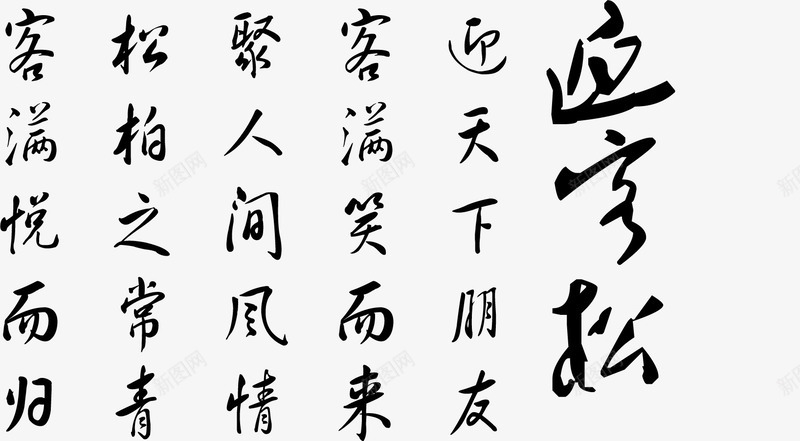 迎客松
迎天下朋友
客满笑而来
聚人间风情
松柏之常青
客满悦而归
新图网